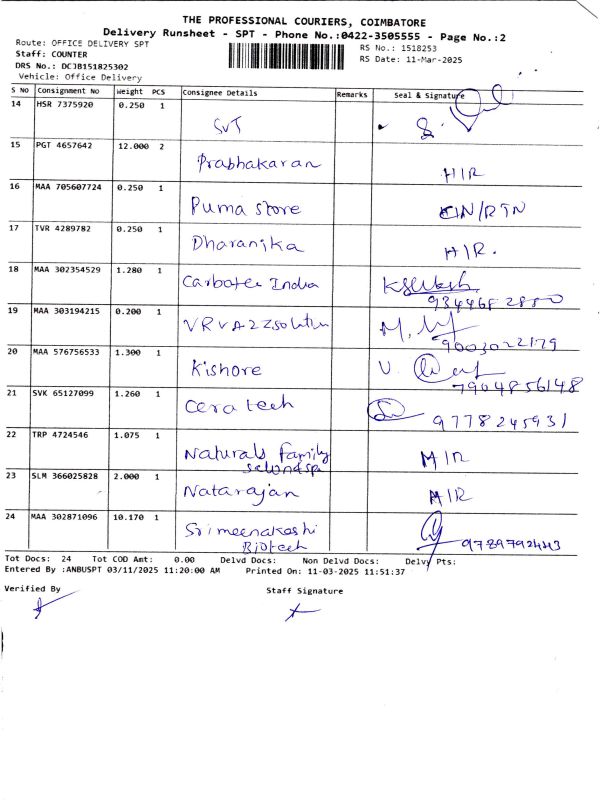 THE PROFESSIONAL COURIERS, COIMBATORE
Delivery Runsheet - SPT - Phone No.:0422-3505555 - Page No.:2
Route: OFFICE DELIVERY SPT
RS No.: 1518253
Staff: COUNTER
RS Date: 11-Mar-2025
DRS No.: DCJB151825302
Vehicle: Office Delivery
S No Consignment No Weight PCS Consignee Details Remarks Seal & Signature
14 HSR 7375920 0.250 1 SVT
15 PGT 4657642 12.000 2 Prabhakaran HIR
16 MAA 705607724 0.250 1 Puma store
17 TVR 4289782 0.250 1 Dharanika HIR.
18 MAA 302354529 1.280 1 India
19 MAA 303194215 0.200 1 9003022179
20 MAA 576756533 1.300 1 Kishore 7904856148
21 SVK 65127099 1.260 1 Cera tech 9778245931
22 TRP 4724546 1.075 1 Naturals family MIR
23 SLM 366025828 2.000 1 Natarajan MIR
24 MAA 302871096 10.170 1 Srimeenakashi
Biotech
Tot Docs: 24 Tot COD Amt: 0.00 Delvd Docs: Non Delvd Docs: Delvy Pts:
Entered By :ANBUSPT 03/11/2025 11:20:00 AM Printed On: 11-03-2025 11:51:37
Verified By Staff Signature